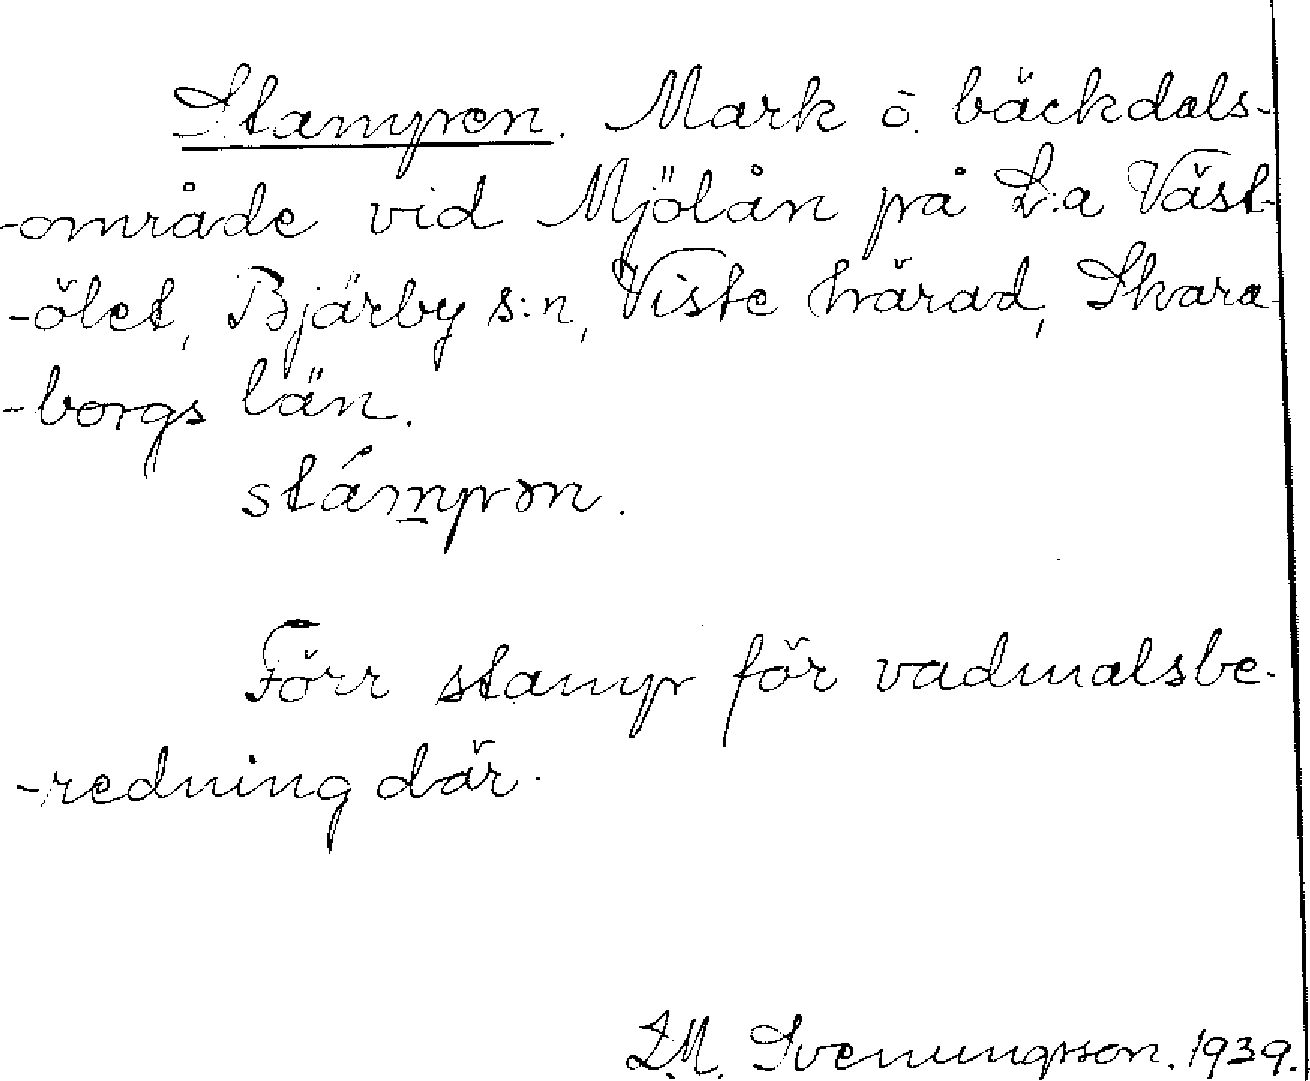 Stampen. Mark o. bäckdals-
-område vid Mjölån på L:a Väst-
-ölet, Bjärby s:n, Viste härad, Skara-
-borgs län.
stámpən.
Förr stamp för vadmalsbe-
-redning där.
L.M. Svenungsson. 1939.